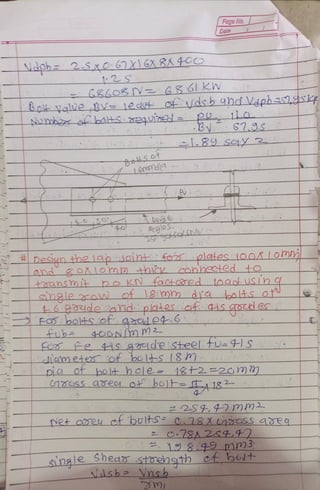 Page No.
Date
Vdpb = 2.5x0.67x16x8x400
1.25
= 68608N = 68.61 KN
Bolt value, BV = least of Vdsb and Vdpb =
Number of bolts required = PU = 110
BV 57.95
= 1.89 say 2
Bolts of
16mm dia
# Design the lap joint for plates 100x10mm
and 80x10mm thick connected to
transmit factored load using
single row of 18mm dia bolts of
4.6 grade and plates of 415 grades
→ For bolts of grade 4.6
fub = 400N/mm2
For Fe 415 grade steel fu = 415
diameter of bolts 18m
Dia of bolt hole = 18+2=20mm
Gross area of bolt = π/4 x 18²
= 254.47mm2
Net area of bolts = 0.78 x Gross area
= 0.78x254.47
= 198.49 mm2
single shear strength of bolt
Vdsb = Vnsb